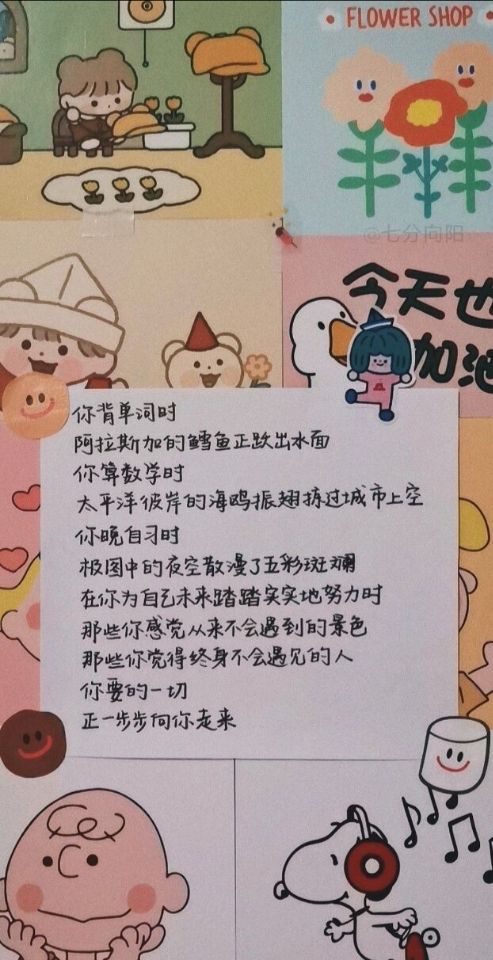 FLOWER SHOP
@七分向阳
今天也
加油
你背单词时
阿拉斯加的鳕鱼正跃出水面
你算数学时
太平洋彼岸的海鸥振翅掠过城市上空
你晚自习时
极图中的夜空散漫了五彩斑斓
在你为自己未来踏踏实实地努力时
那些你感觉从来不会遇到的景色
那些你觉得终身不会遇见的人
你要的一切
正一步步向你走来